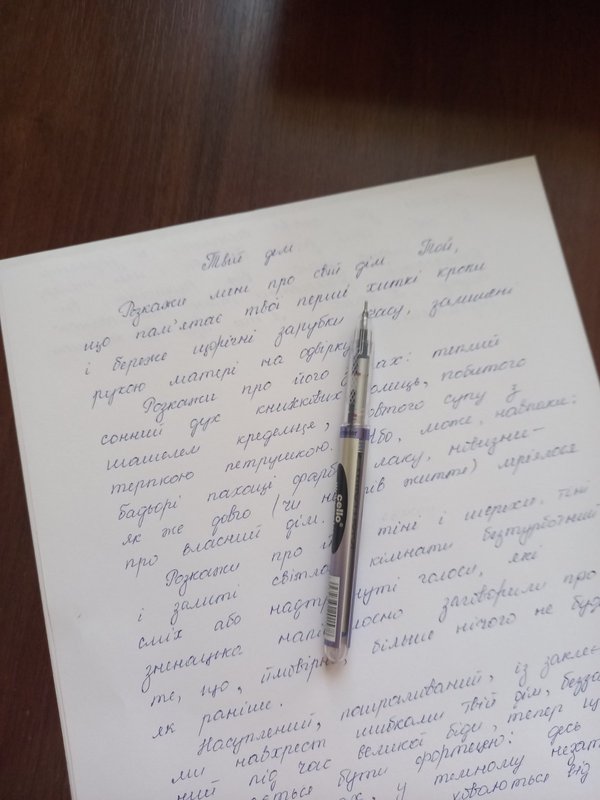 Твій дім
Розкажи мені про свій дім Той,
що пам'ятає твої перші хиткі кроки
і береже щорічні зарубки часу, залишені
рукою матері на одвірку
Розкажи про його : теплий
сонний дух книжкових полиць, побитого
шашелем креденця, жовтого супу з
терпкою петрушкою. Або, може, навпаки:
бадьорі пахощі фарби лаку, новизни –
як же довго (чи не життя) мріялося
про власний дім.
Розкажи про тіне і шерехи, тіні
і залиті світлом кімнати безтурботний
сміх або голоси, які
зненацька заговорили про
те, що, ймовірно, більше нічого не буде
як раніше.
Насуплений, пошрамований, із заклеєни
ми навхрест шибками твій дім,
ний під час великої біди, тепер
ється бути фортецею: десь
у темному
ховаються від
cello